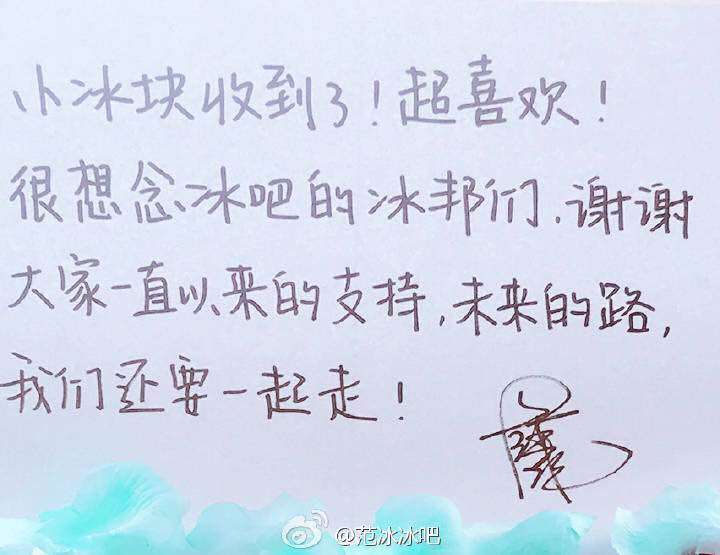 小冰块收到了！超喜欢！
很想念冰吧的冰邦们，谢谢
大家一直以来的支持，未来的路，
我们还要一起走！
@范冰冰吧